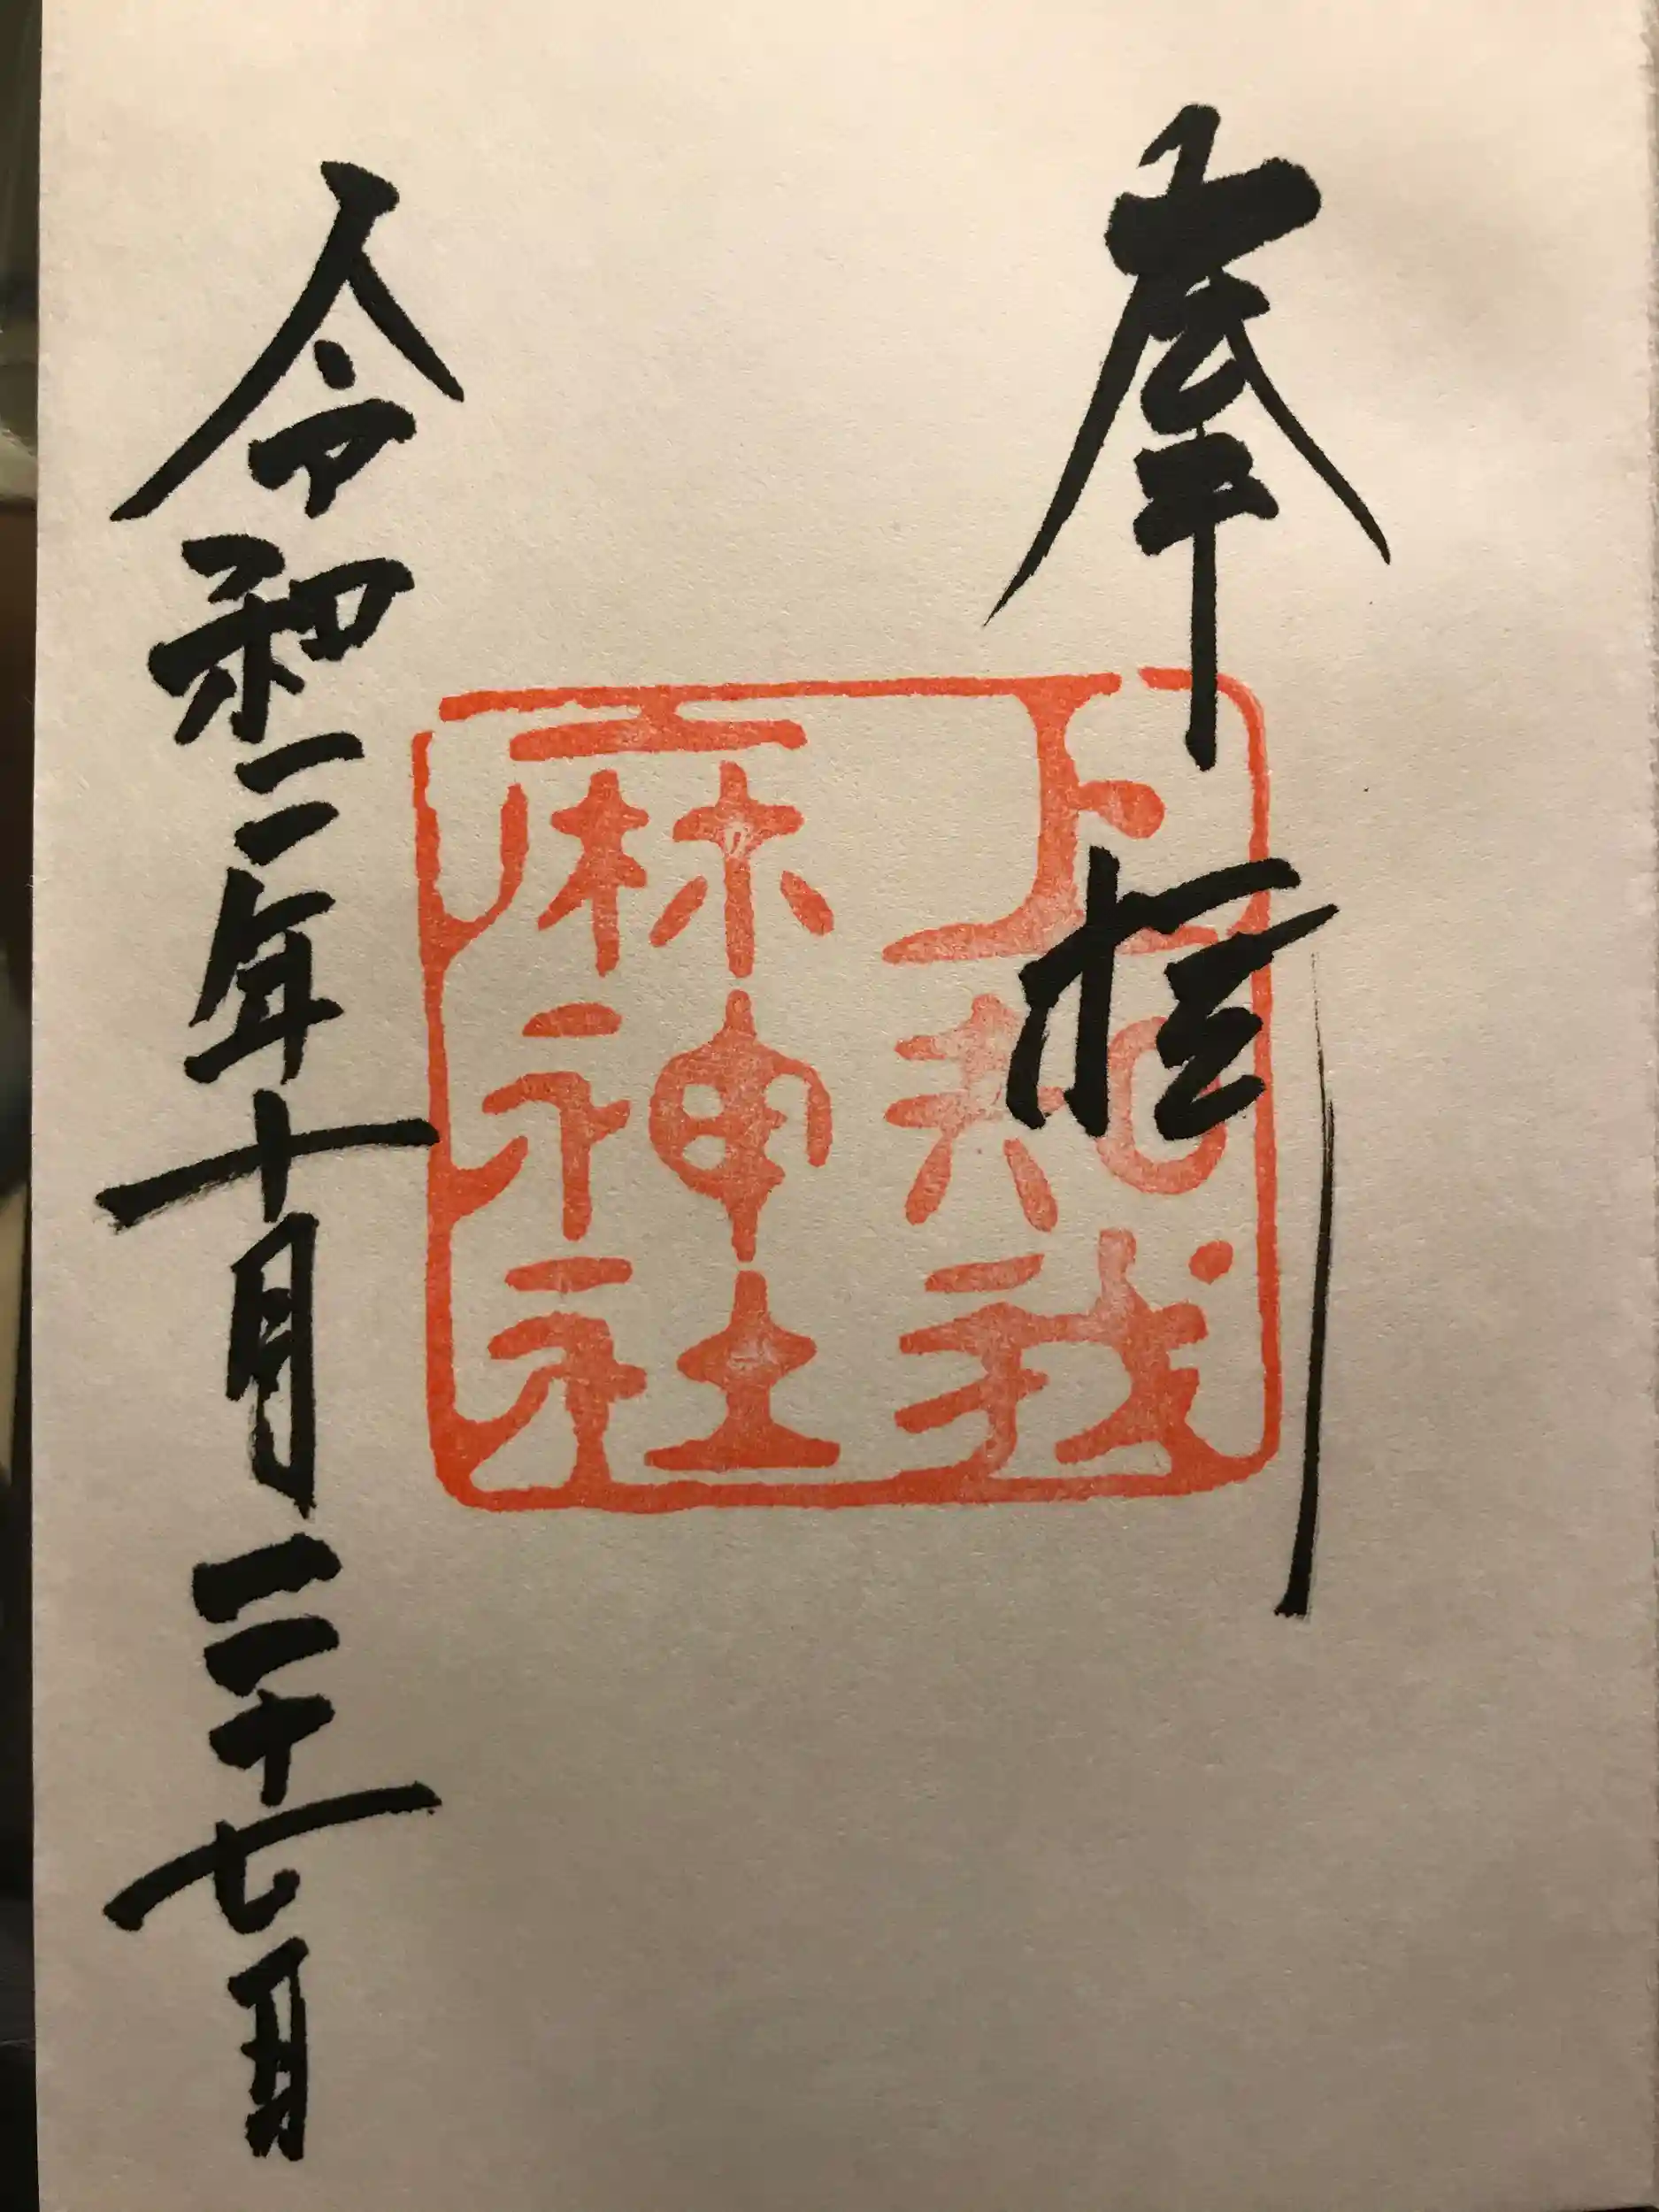 奉拝
上知我
麻神社
令和二年十月二十七日